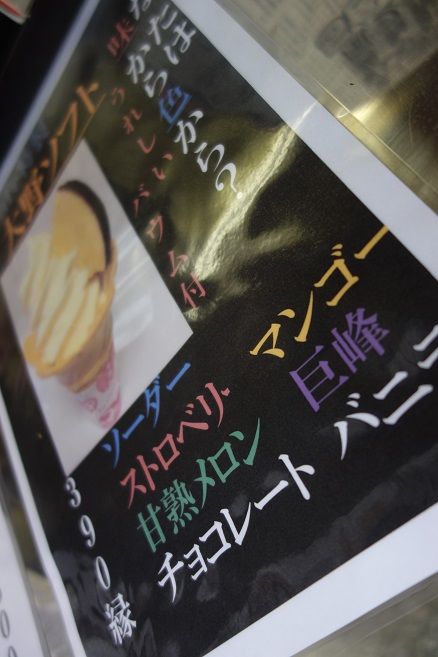 たは色から?
からか
味うれしいバウム付
大野ソフト
マンゴー
巨峰
バニ
ソーダー
ストロベリ
甘熟メロン
チョコレート
390縁